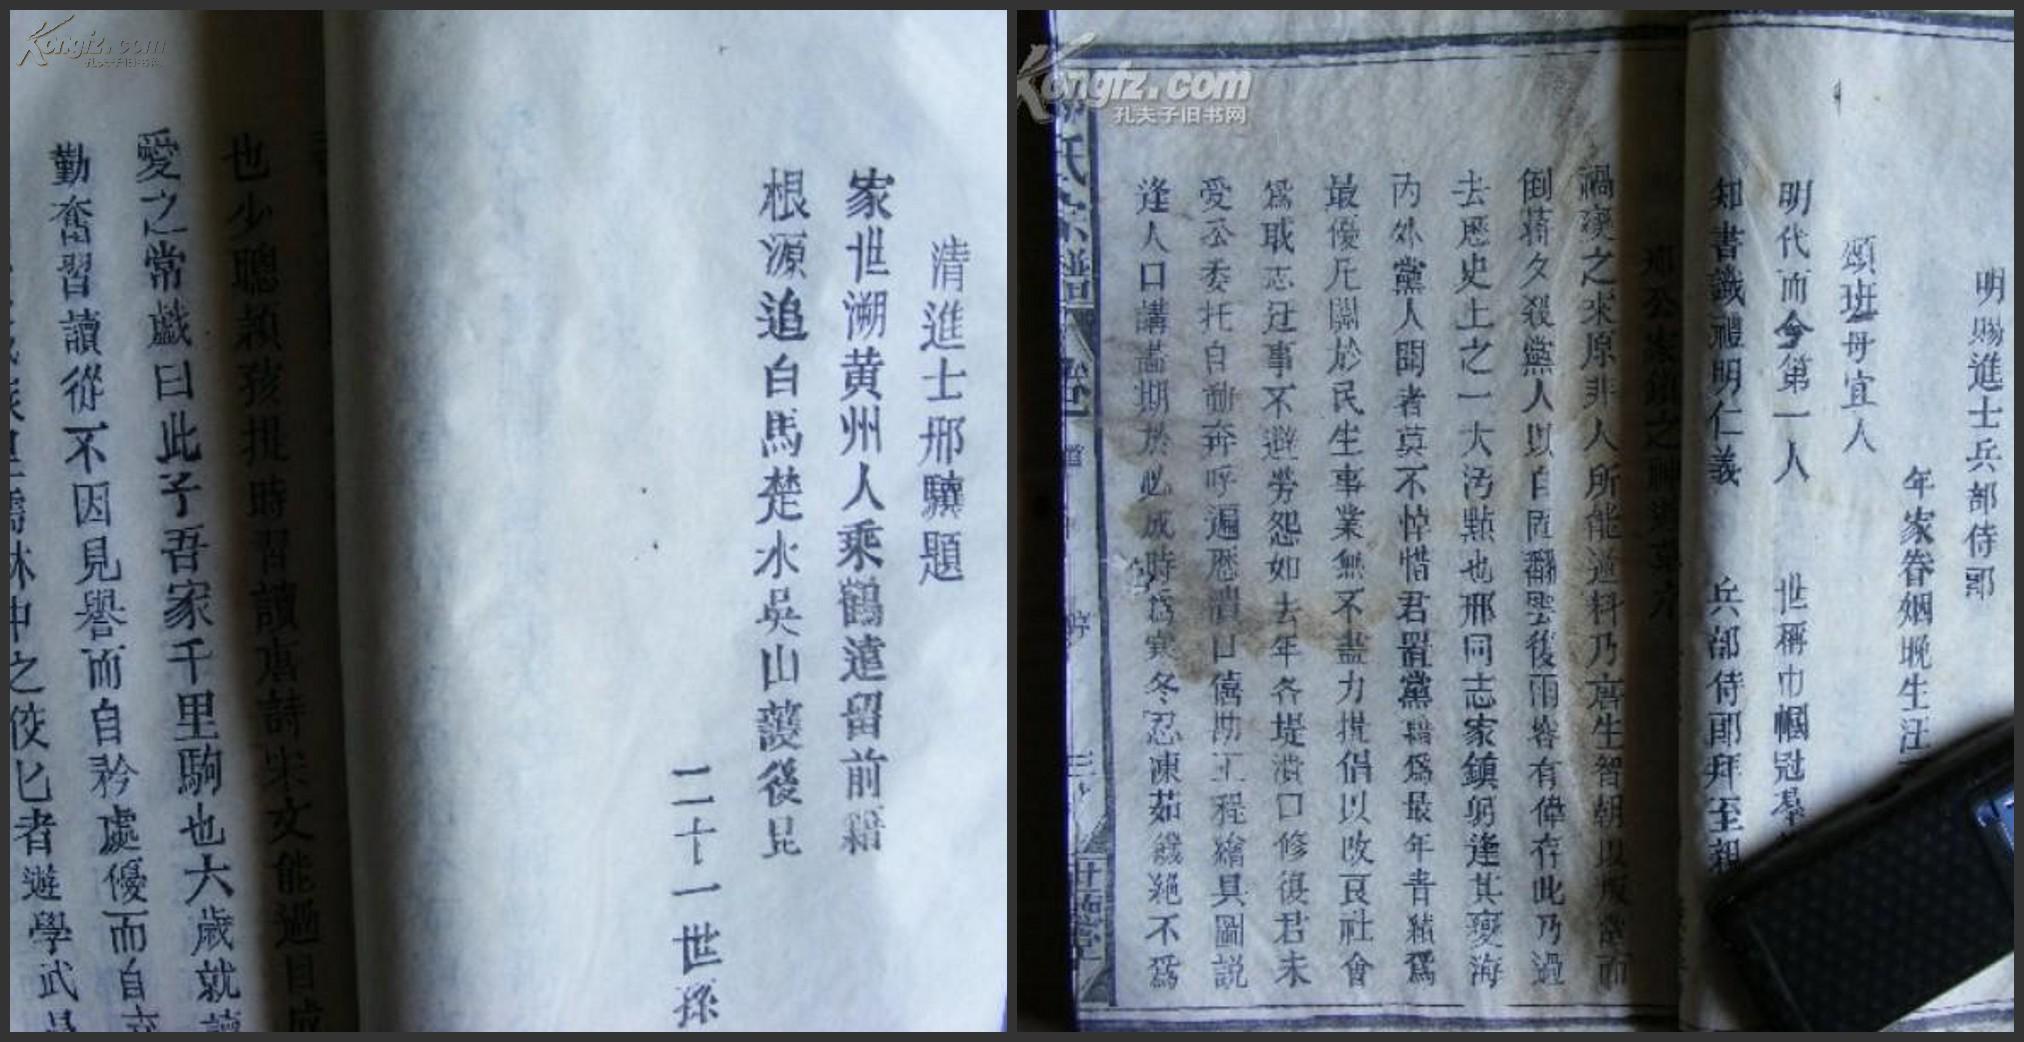 Kongfz.com
孔夫子旧书网
清進士邢驥題
家世溯黄州人乘鶴遠留前籍
根源追白馬楚水吳山護後昆
二十一世孫
也少聰穎孩提時習讀唐詩宋文能過目成
愛之常戲曰此子吾家千里駒也六歲就讀
勤奮習讀從不因見譽而自矜處優而自
林中之佼匕者遊學武
Kongfz.com
孔夫子旧书网
明賜進士兵部侍郎
年家眷姻晚生汪
頌班母宜人
明代而今第一人 世稱巾幗冠羣
知書識禮明仁義 兵部侍郎拜至親
邢公家鎮之神道
禍變之來原非人所能逆料乃唐生智朝以叛黨而
倒蔣夕殺黨人以自固翻雲後雨容有偉存此乃過
去歷史上之一大汚點也邢同志家鎮躬逢其變海
內外黨人聞者莫不悼惜君置黨籍為最年青績爲
最優凡關於民生事業無不盡力提倡以改良社會
爲職志迋事不避勞怨如去年各堤潰口修復君未
受公委托自動奔呼遍歷潰口僖助工程繪具圖説
逢人口講畫期於必成時爲寒冬忍凍茹饑絕不爲
氏宗譜
卷
序
三